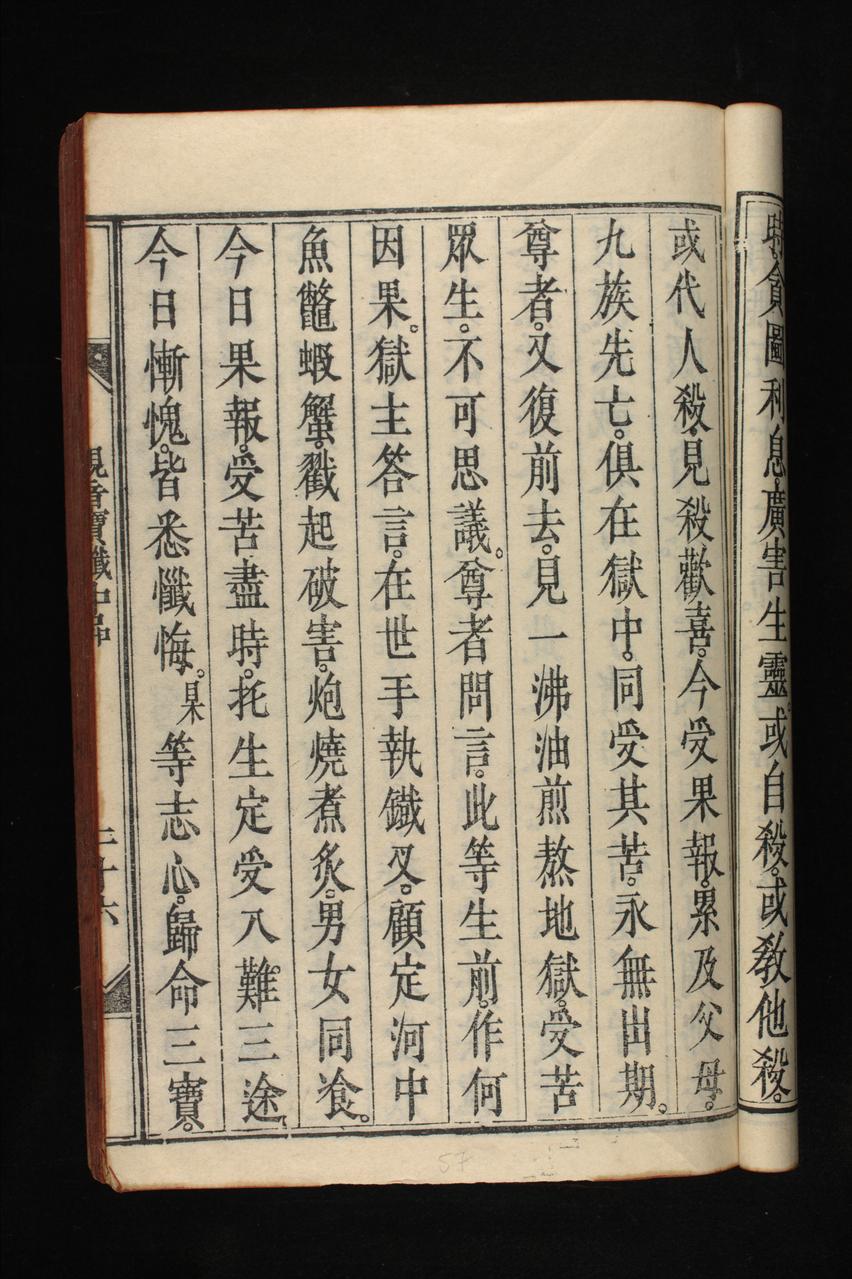 貪圖利息。廣害生靈。或自殺。或教他殺。
或代人殺。見殺歡喜。今受果報。累及父母。
九族先亡。俱在獄中。同受其苦。永無出期。
尊者。又復前去。見一沸油煎熬地獄。受苦
眾生。不可思議。尊者問言。此等生前。作何
因果。獄主答言。在世手執鐵叉。顧定河中
魚鼈蝦蟹。戳起破害。炮燒煮炙。男女同飡。
今日果報。受苦盡時。托生定受八難。三途
今日慚愧。皆悉懺悔。某等志心。歸命三寶。
觀音寶懺中卷
二十六
57